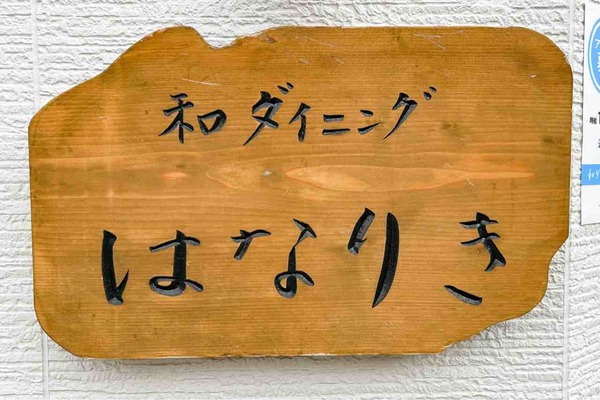 和ダイニング
はなりき